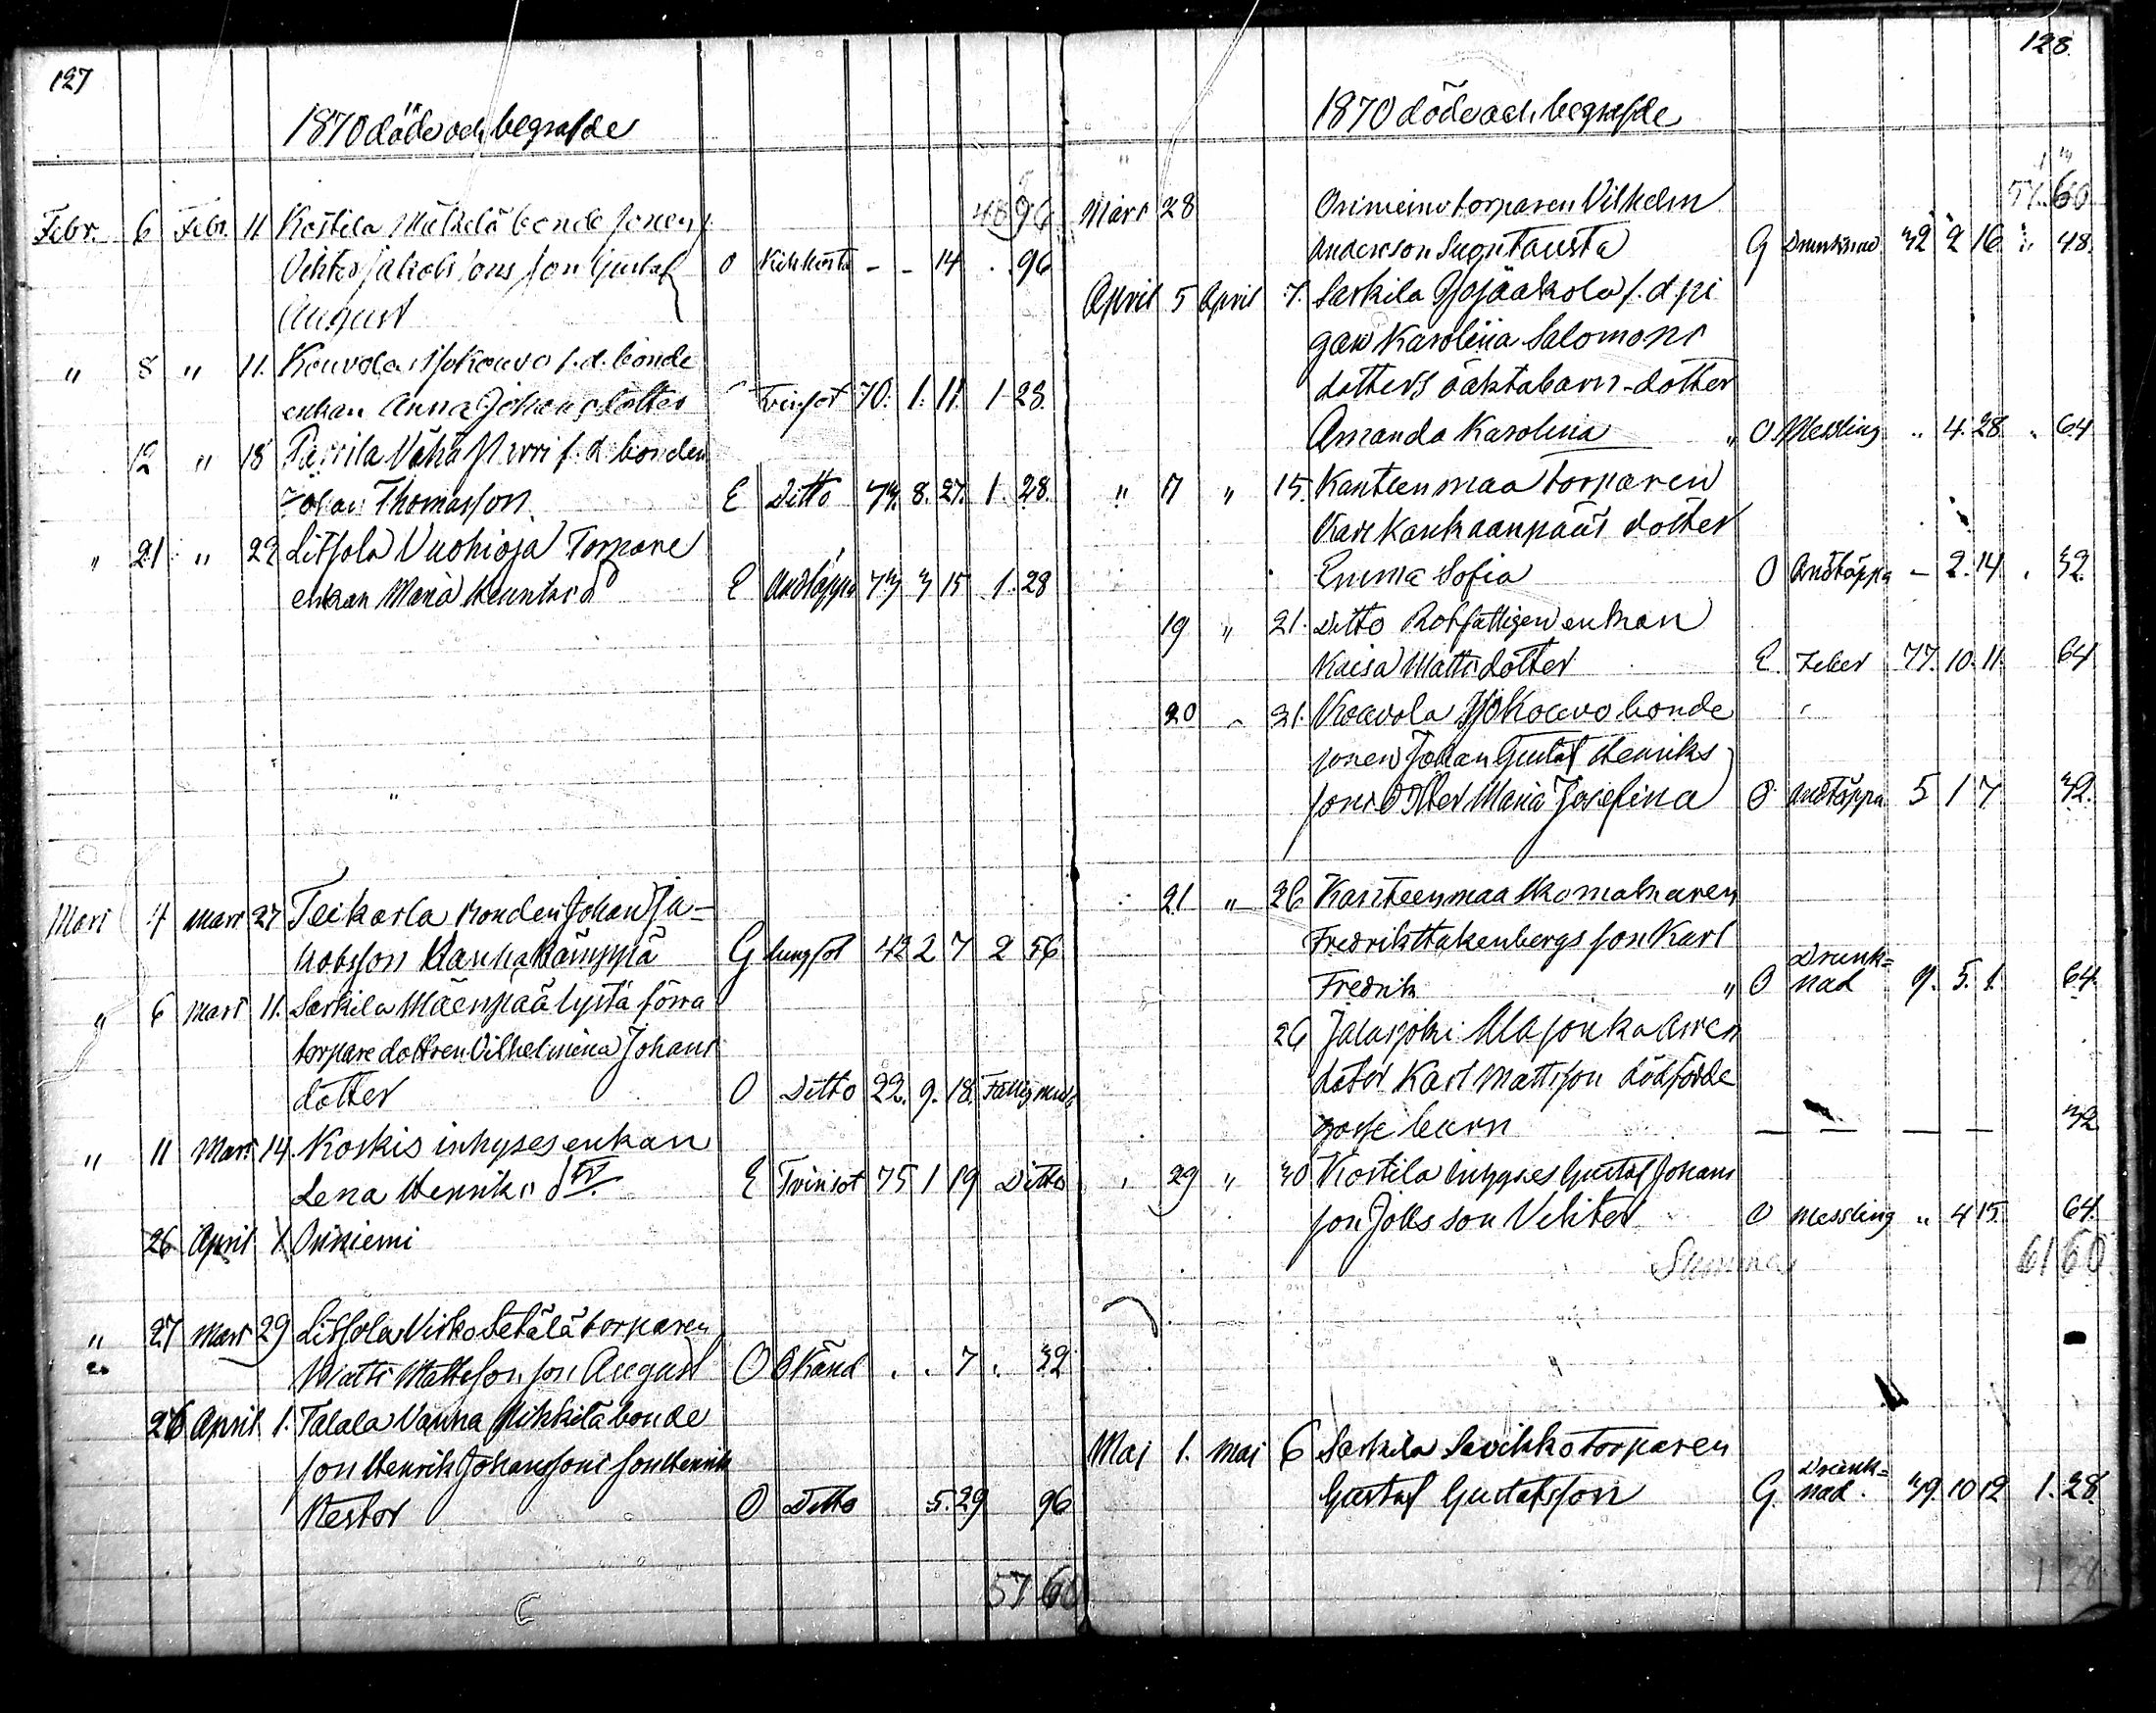 127
1870 döde och begrafde
48 96
Febr. 6 Febr. 11 Kostila bonde sonen
Vikter Jakobs sons son Gustaf O Kikhosta - - 14 . 96
August
" 8 " 11. Kouvola f.d. bonde
enkan Anna Johans dotter 70. 1. 11. 1 28.
12 " 18 f.d. bonden
Johan Thomasson E Ditto 73. 8. 27. 1. 28.
" 21 " 22 Litsola Vuohioja Torpare
enkan Maria E Andtäppa 73 3 15 1. 28
Mars 4 Mars 27 Teikarla bonden Johan Ja-
kobsson G lungsot 42 2 7 2 56
" 6 Mars 11. Sarkila Mäenpää förra
torpare dottren Vilhelmina Johans
dotter O Ditto 22. 9. 18.
" 11 Mars 14. Koskis inhyses enkan
Lena Henriks d E Tvinsot 75 1 19 Ditto
26 April 1
" 27 Mars 29 Litsola torparen
Matts Mattsson son August O Okänd . . 7 . 32
26 April 1. Talala bonde
son Henrik Johanssons son Henrik
Nestor O Ditto 5. 29 96
57 60
128.
1870 döde och begrafde
57. 60
Mars 28 torparen Vilhelm
Andersson G Drunknad 32 2 16 " 48.
April 5 April 7. Sarkila f.d. pi
gan Karolina Salomons
dotters oäkta barn dotter
Amanda Karolina " O. Messling " 4. 28. " 64
" 7 " 15. Kanteenmaa torparen
Karl Kankaanpääs dotter
Emma Sofia O Andtäppa - 2. 14 . 32.
19 " 21. Ditto Rotfattigen enkan
Kaisa Matts dotter E. Feber 77. 10. 11. 64
20 " 21. Kouvola bonde
sonen Johan Gustaf Henriks
sons dotter Maria Josefina O Andtäppa 5 1 7 32.
21 " 26 Kanteenmaa Skomakaren
Fredrik Hakenbergs son Karl
Drunk=
Fredrik " O nad 9. 5. 1. 64.
26 Jalasjoki
Karl Mattsson dödfödde
gosse barn — — — — 32
" 29 " 30 Kostila inhyses Gustaf Johans
son son Vikter O Messling " 4 15 64.
Summa 61 60
Maj 1. Maj 6 Sarkila Savikko torparen
Drunk=
Gustaf Gustafsson G. nad. 39. 10 12 1. 28.
1 28